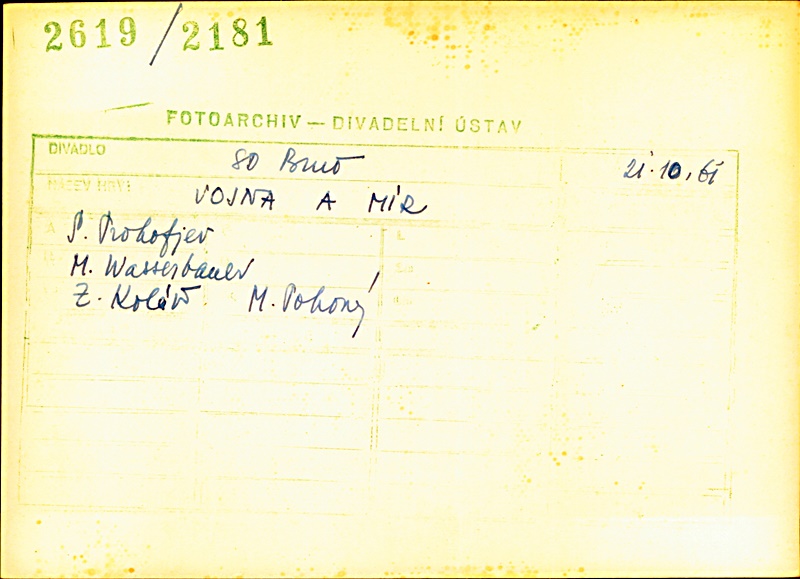 2619/2181
FOTOARCHIV — DIVADELNÍ ÚSTAV
DIVADLO SO Brno 21.10.61
NÁZEV HRY: VOJNA A MÍR
S. Prokofjev
M. Wasserbauer
Z. Kolář M. Pokorný